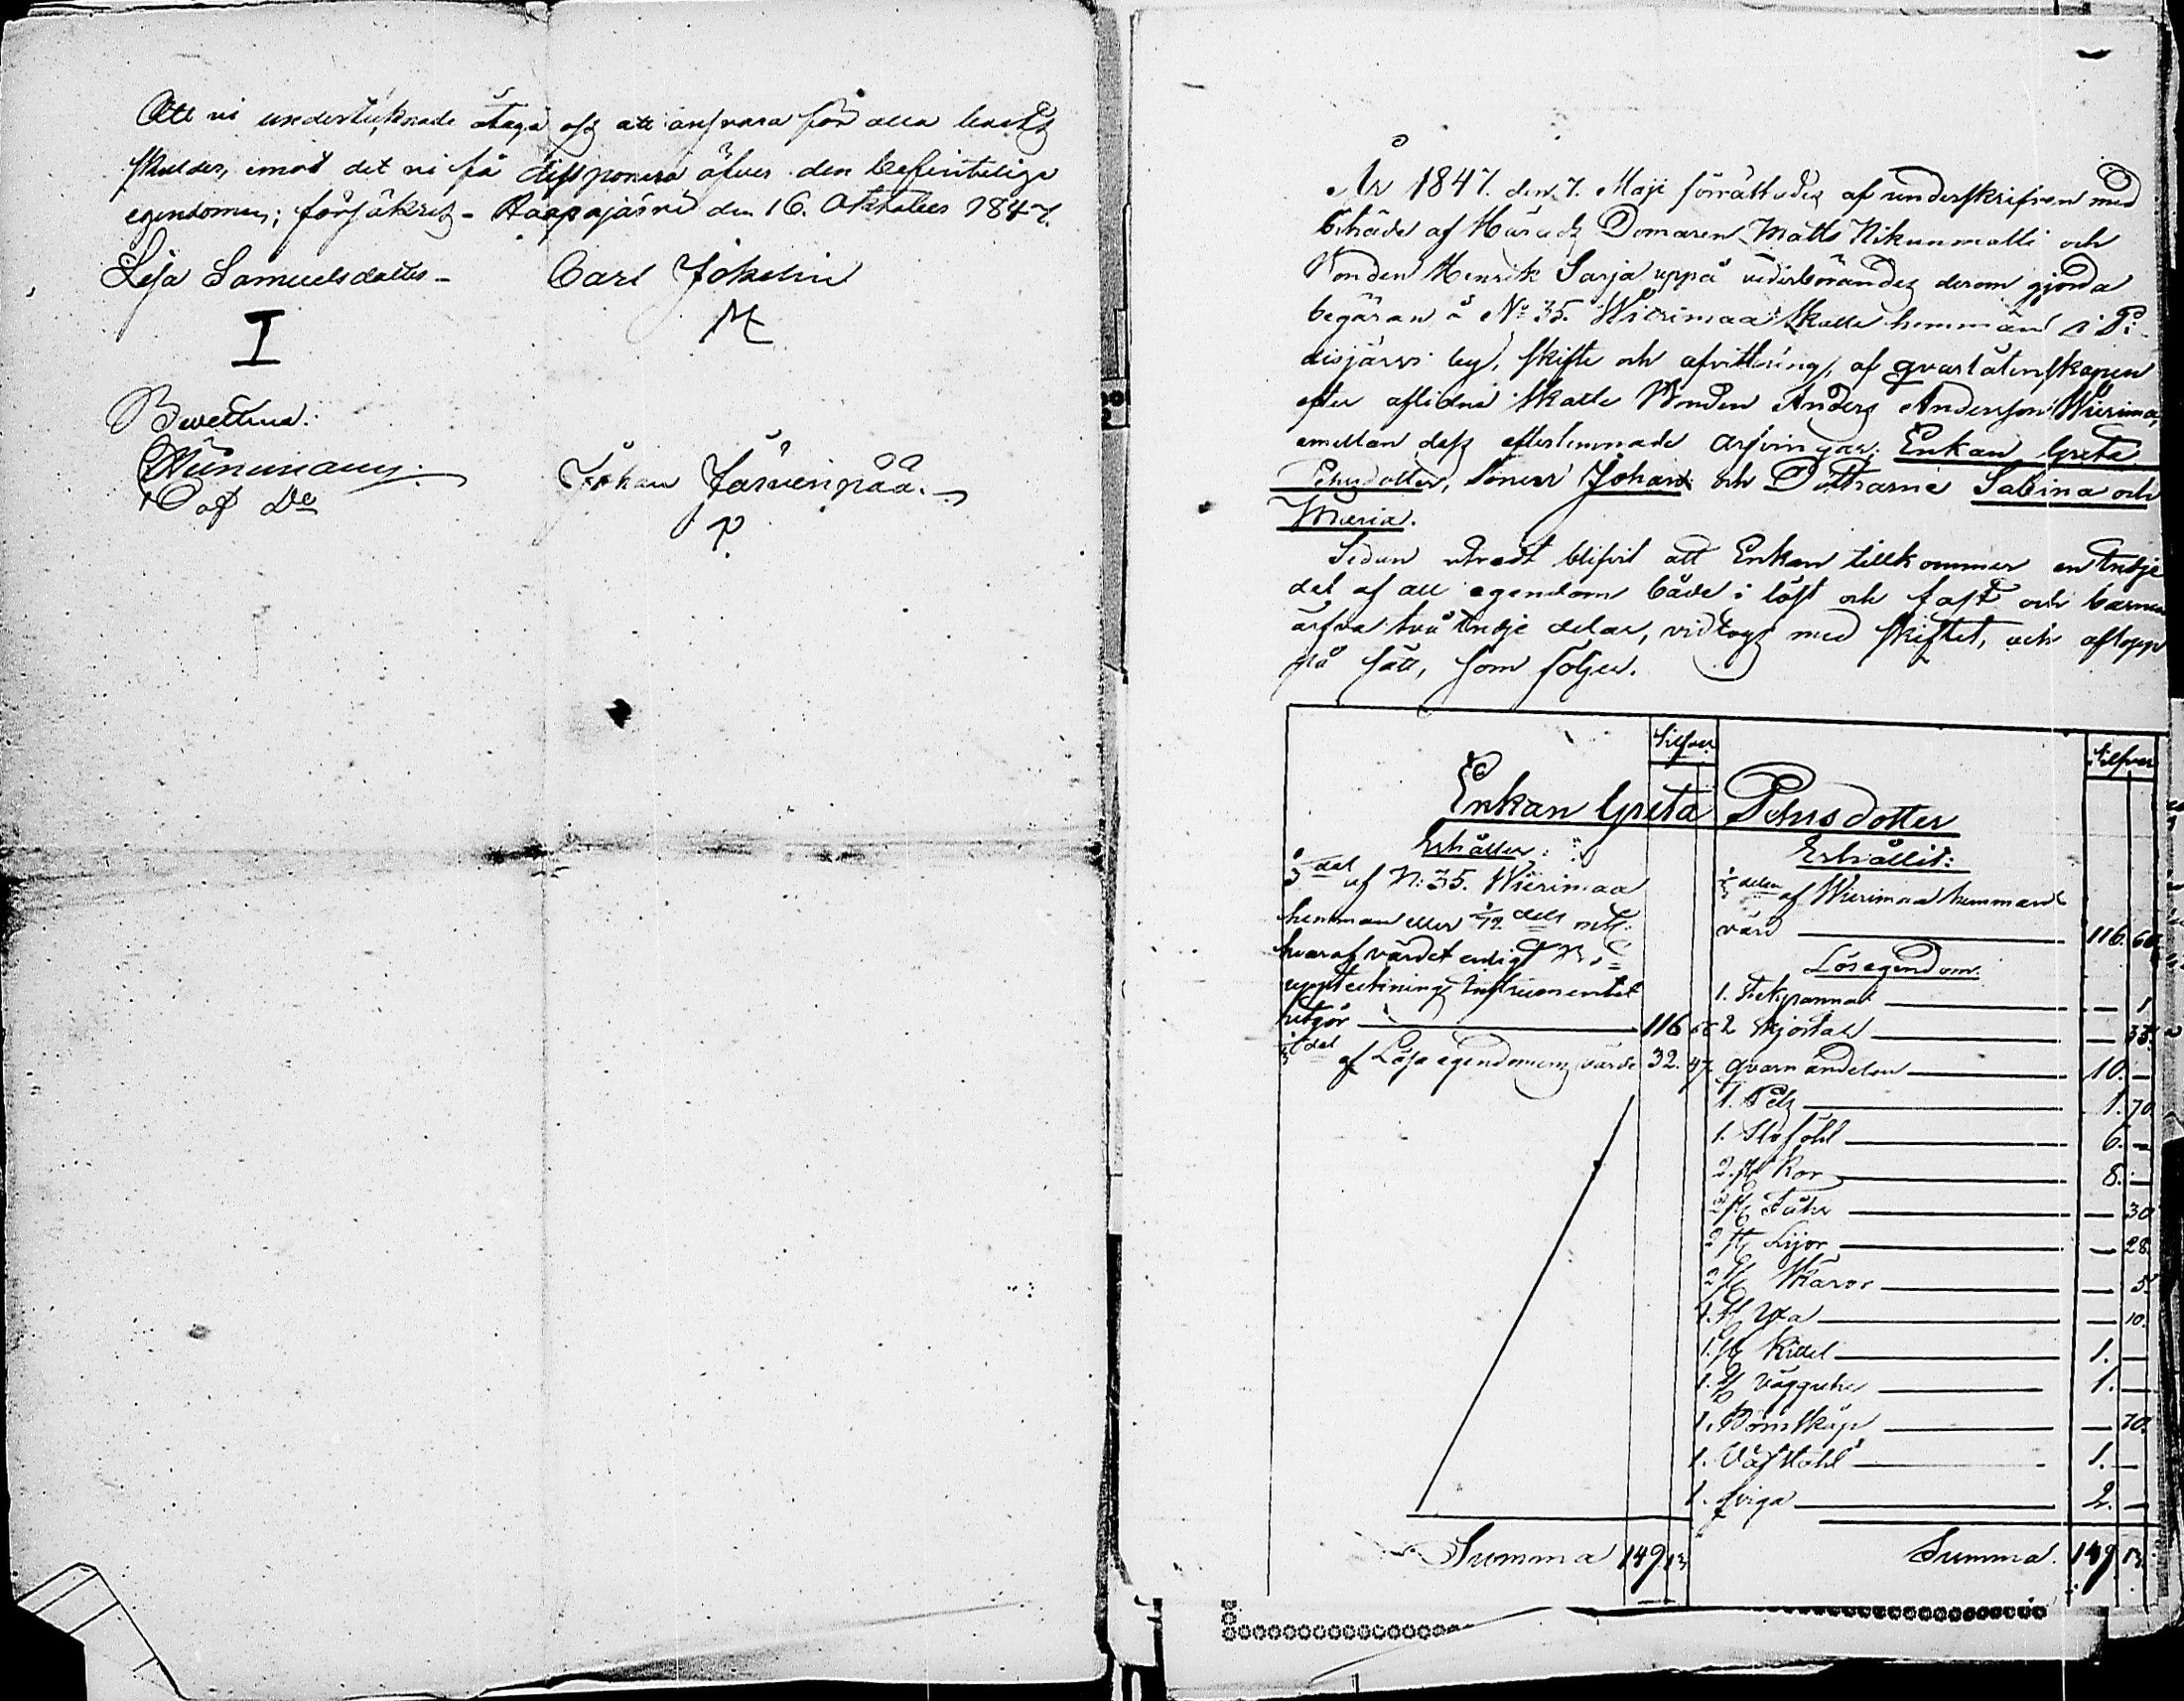 Att vi undertecknade åtaga oss att ansvara för alla
skulder, emot det vi få disponera öfver den befinteliga
egendomen; försäkres - Haapajärvi den 16. Oktober 1847.
Lisa Samuelsdotter - Carl Jokelin
I M
Bevittna:
Johan Järvenpää.
År 1847. den 7. Maji förrättades af underskrifven med
biträde af Härads Domaren Matts Nikunmatti och
Bonden Henrik Sarja uppå vederbörandes derom gjorda
begäran å No 35. Wierimaa Skatte hemman i Pi-
disjärvi by, skifte och afvittring, af qvarlåtenskapen
efter aflidne Skatte Bonden Anders Andersson Wierima,
emellan dess efterlemnade arfvingar, Enkan Greta
Pehrsdotter, Sonen Johan och Döttrarne Sabina och
Maria.
Sedan utredt blifvit att Enkan tillkommer en tredje
del af all egendom både i löst och fast och barnen
ärfva två tredje delar, vidtogs med skiftet, och aflopp
på sätt, som följer.
Silfver Silfver
Enkan Greta Pehrsdotter
Erhåller: Erhållit:
1/3 del af N: 35. Wierimaa
hemman eller 1/12 dels mtl.
hvaraf värdet enligt
upptecknings Instrumentet
utgör 116 66
1/3 del af Lösa egendomens värde 32. 47
Summa 149 13
1/3 delen af Wierimaa hemmans
värd 116. 66
Lösegendom.
1. Stekpannan 1
2 Skjortar 35.
qvarn andelen 10. —
1. Pels 1. 70.
1. Stoföhl 6. —
2. st Kor 8. —
2 st Fåhr — 30
2 st Lijor — 28.
2 st Skäror — 5.
1. st Yxa — 10.
1. st Kittel 1. —
1. st Vägguhr 1. —
1. — 70.
1. Väfstohl 1. —
1. qviga 2. —
Summa. 149 13.